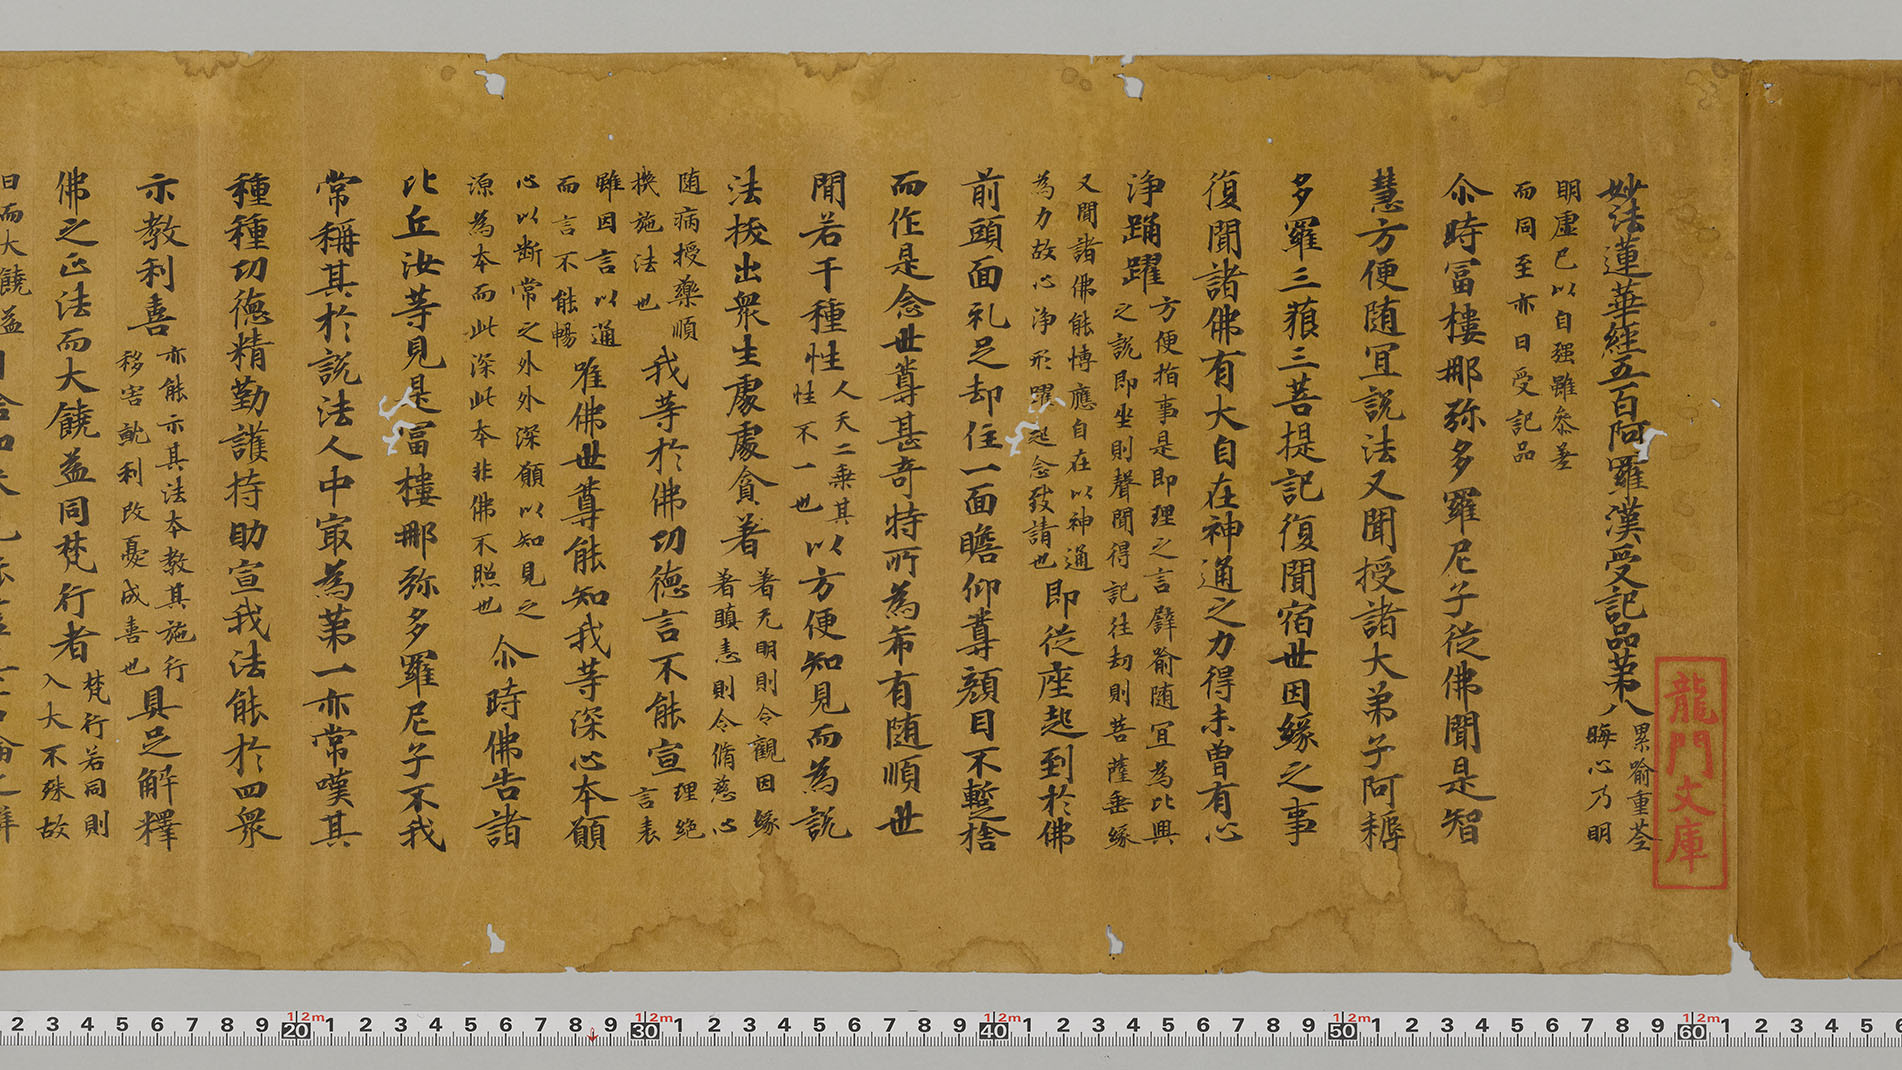 妙法蓮華經五百阿羅漢受記品第八 累喻重荃
晦心乃明
明虛已以自强雖叅差
而同至亦曰受記品
尒時冨樓那弥多羅尼子從佛聞是智
慧方便随冝說法又聞授諸大弟子阿耨
多羅三藐三菩提記復聞宿世因緣之事
復聞諸佛有大自在神通之力得未曽有心
浄踊躍 方便指事是即理之言辟喻随冝為比興
之說即坐則聲聞得記往劫則菩薩垂緣
又聞諸佛能博應自在以神通
為力故心浄形躍起念致請也 即從座起到於佛
前頭面礼足却住一面瞻仰尊顔目不蹔捨
而作是念世尊甚奇特所為希有随順世
間若干種性 人天二乗其
性不一也 以方便知見而為說
法拔出衆生處處貪著 著无明則令觀因緣
著瞋恚則令脩慈心
随病授藥順
機施法也 我等於佛功德言不能宣 理絶
言表
雖因言以通
而言不能暢 唯佛世尊能知我等深心本願
心以断常之外外深願以知見之
源為本而此深此本非佛不照也 尒時佛告諸
比丘汝等見是冨樓那弥多羅尼子不我
常稱其於說法人中寂為苐一亦常嘆其
種種功德精勤護持助宣我法能於四衆
示教利喜 亦能示其法本教其施行
移害就利改憂成喜也 具足解釋
佛之正法而大饒益同梵行者 梵行若同則
入大不殊故
曰而大饒益
龍門文庫
12m
2 3 4 5 6 7 8 9 20 1 2 3 4 5 6 7 8 9 30 1 2 3 4 5 6 7 8 9 40 1 2 3 4 5 6 7 8 9 50 1 2 3 4 5 6 7 8 9 60 1 2 3 4 5 6